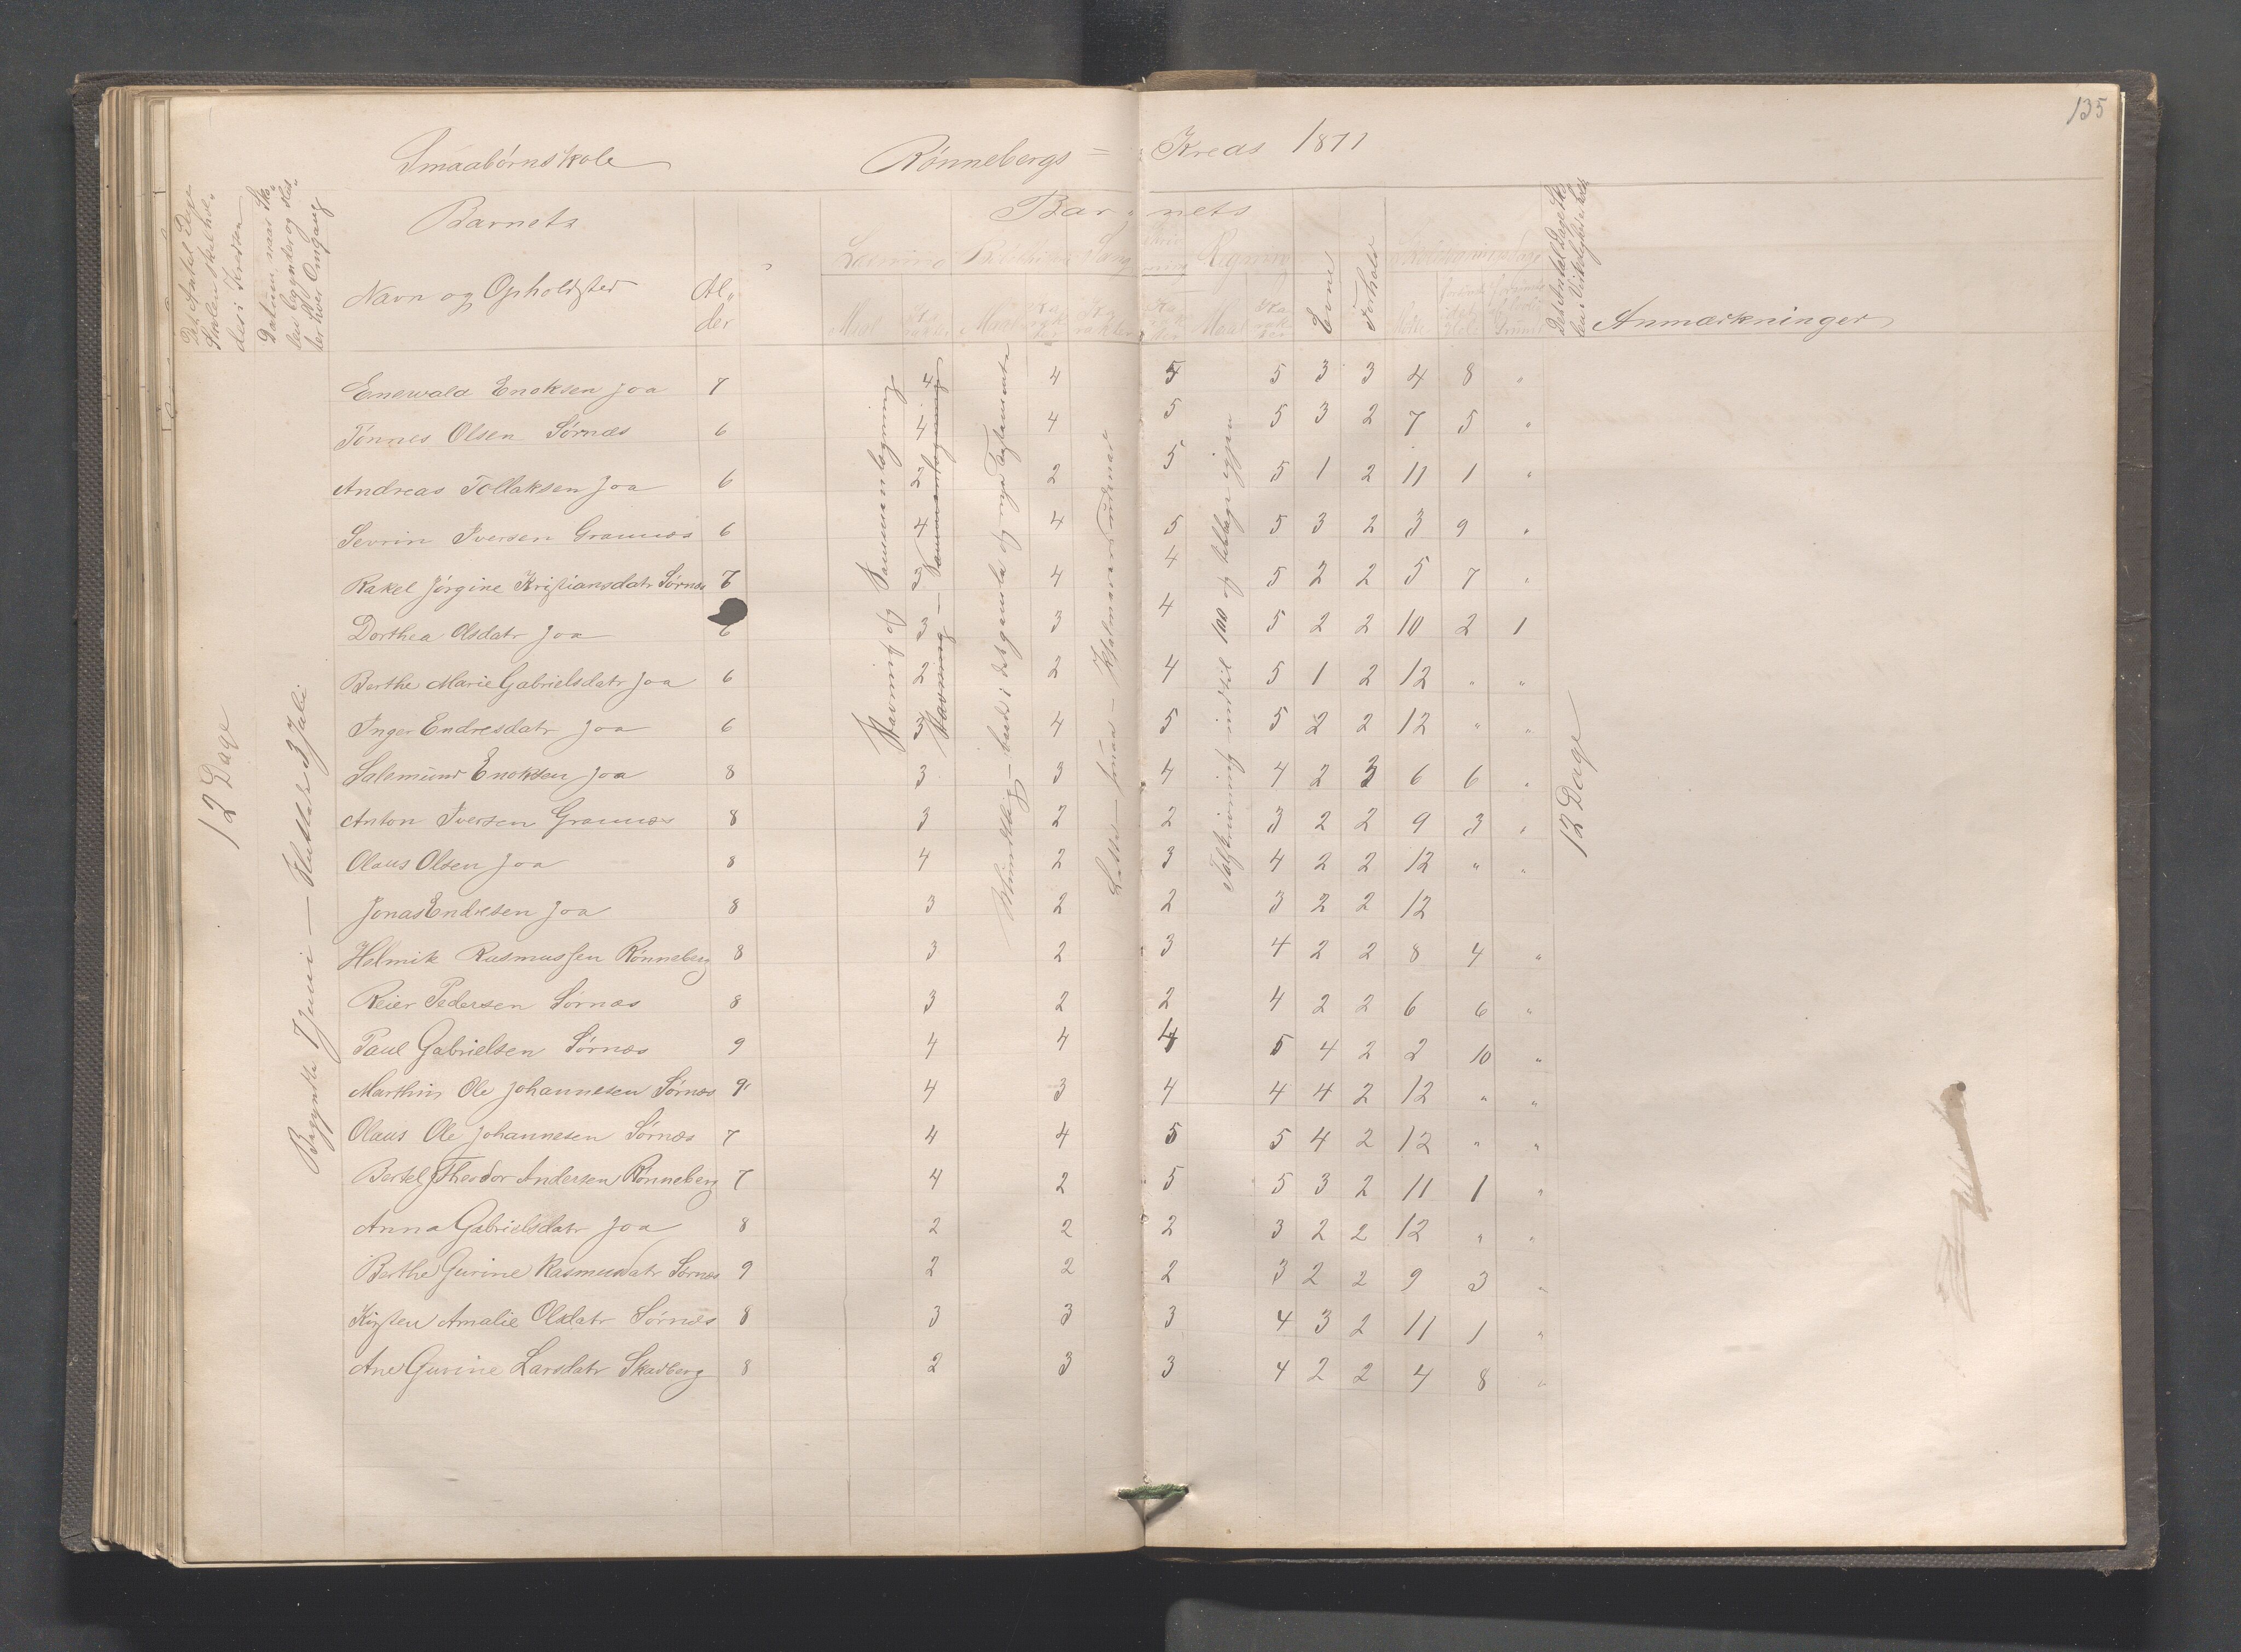 135
Smaabørnskole Rønnebergs = Kreds 1871
Det Antal Dage Skolen skal holdes i Kredsen
Datum, naar Skolen begynder og slutter hver Omgang
Barnets
Navn og Opholdsted
Alder
Barnets
Læsning
Sang
Regning
Maal
Maal
Maal
Evne
Forhold
Anmærkninger
12 Dage
Begyndte 7 Juni — Sluttede 3 Juli
Stavning og Sammenlægning
Talskrivning indtil 100 og tilbage igjen
12 Dage
Enewald Enoksen Joa 7 4 4 5 5 3 3 4 8 "
Tönnes Olsen Sørnæs 6 4 4 5 5 3 2 7 5 "
Andreas Tollaksen Joa 6 2 2 5 5 1 2 11 1 "
Sevrin Iversen Grannæs 6 4 4 5 5 3 2 3 9 "
Rakel Jörgine Kristiansdatr Sørnæs 7 3 4 4 5 2 2 5 7 "
Dorthea Olsdatr Joa 6 3 3 4 5 2 2 10 2 1
Berthe Marie Gabrielsdatr Joa 6 2 2 4 5 1 2 12 " "
Inger Endresdatr Joa 6 3 4 5 5 2 2 12 " "
Salemund Enoksen Joa 8 3 3 4 4 2 3 6 6 "
Anton Iversen Grannæs 8 3 2 2 3 2 2 9 3 "
Olaus Olsen Joa 8 4 2 3 4 2 2 12 " "
Jonas Endresen Joa 8 3 2 2 3 2 2 12
Helmik Rasmussen Rønneberg 8 3 2 3 4 2 2 8 4 "
Reier Pedersen Sørnæs 8 3 2 2 4 2 2 6 6 "
Paul Gabrielsen Sørnæs 9 4 4 4 5 4 2 2 10 "
Marthin Ole Johannesen Sørnæs 9 4 3 4 4 4 2 12 " "
Olaus Ole Johannesen Sørnæs 7 4 4 5 5 4 2 12 " "
Bertel Theodor Andersen Rønneberg 7 4 2 5 5 3 2 11 1 "
Anna Gabrielsdatr Joa 8 2 2 2 3 2 2 12 " "
Berthe Gurine Rasmusdatr Sørnæs 9 2 2 2 3 2 2 9 3 "
Kirsten Amalie Olsdatr Sørnæs 8 3 3 3 4 3 2 11 1 "
Ane Gurine Larsdatr Skadberg 8 2 3 3 4 2 2 4 8 "